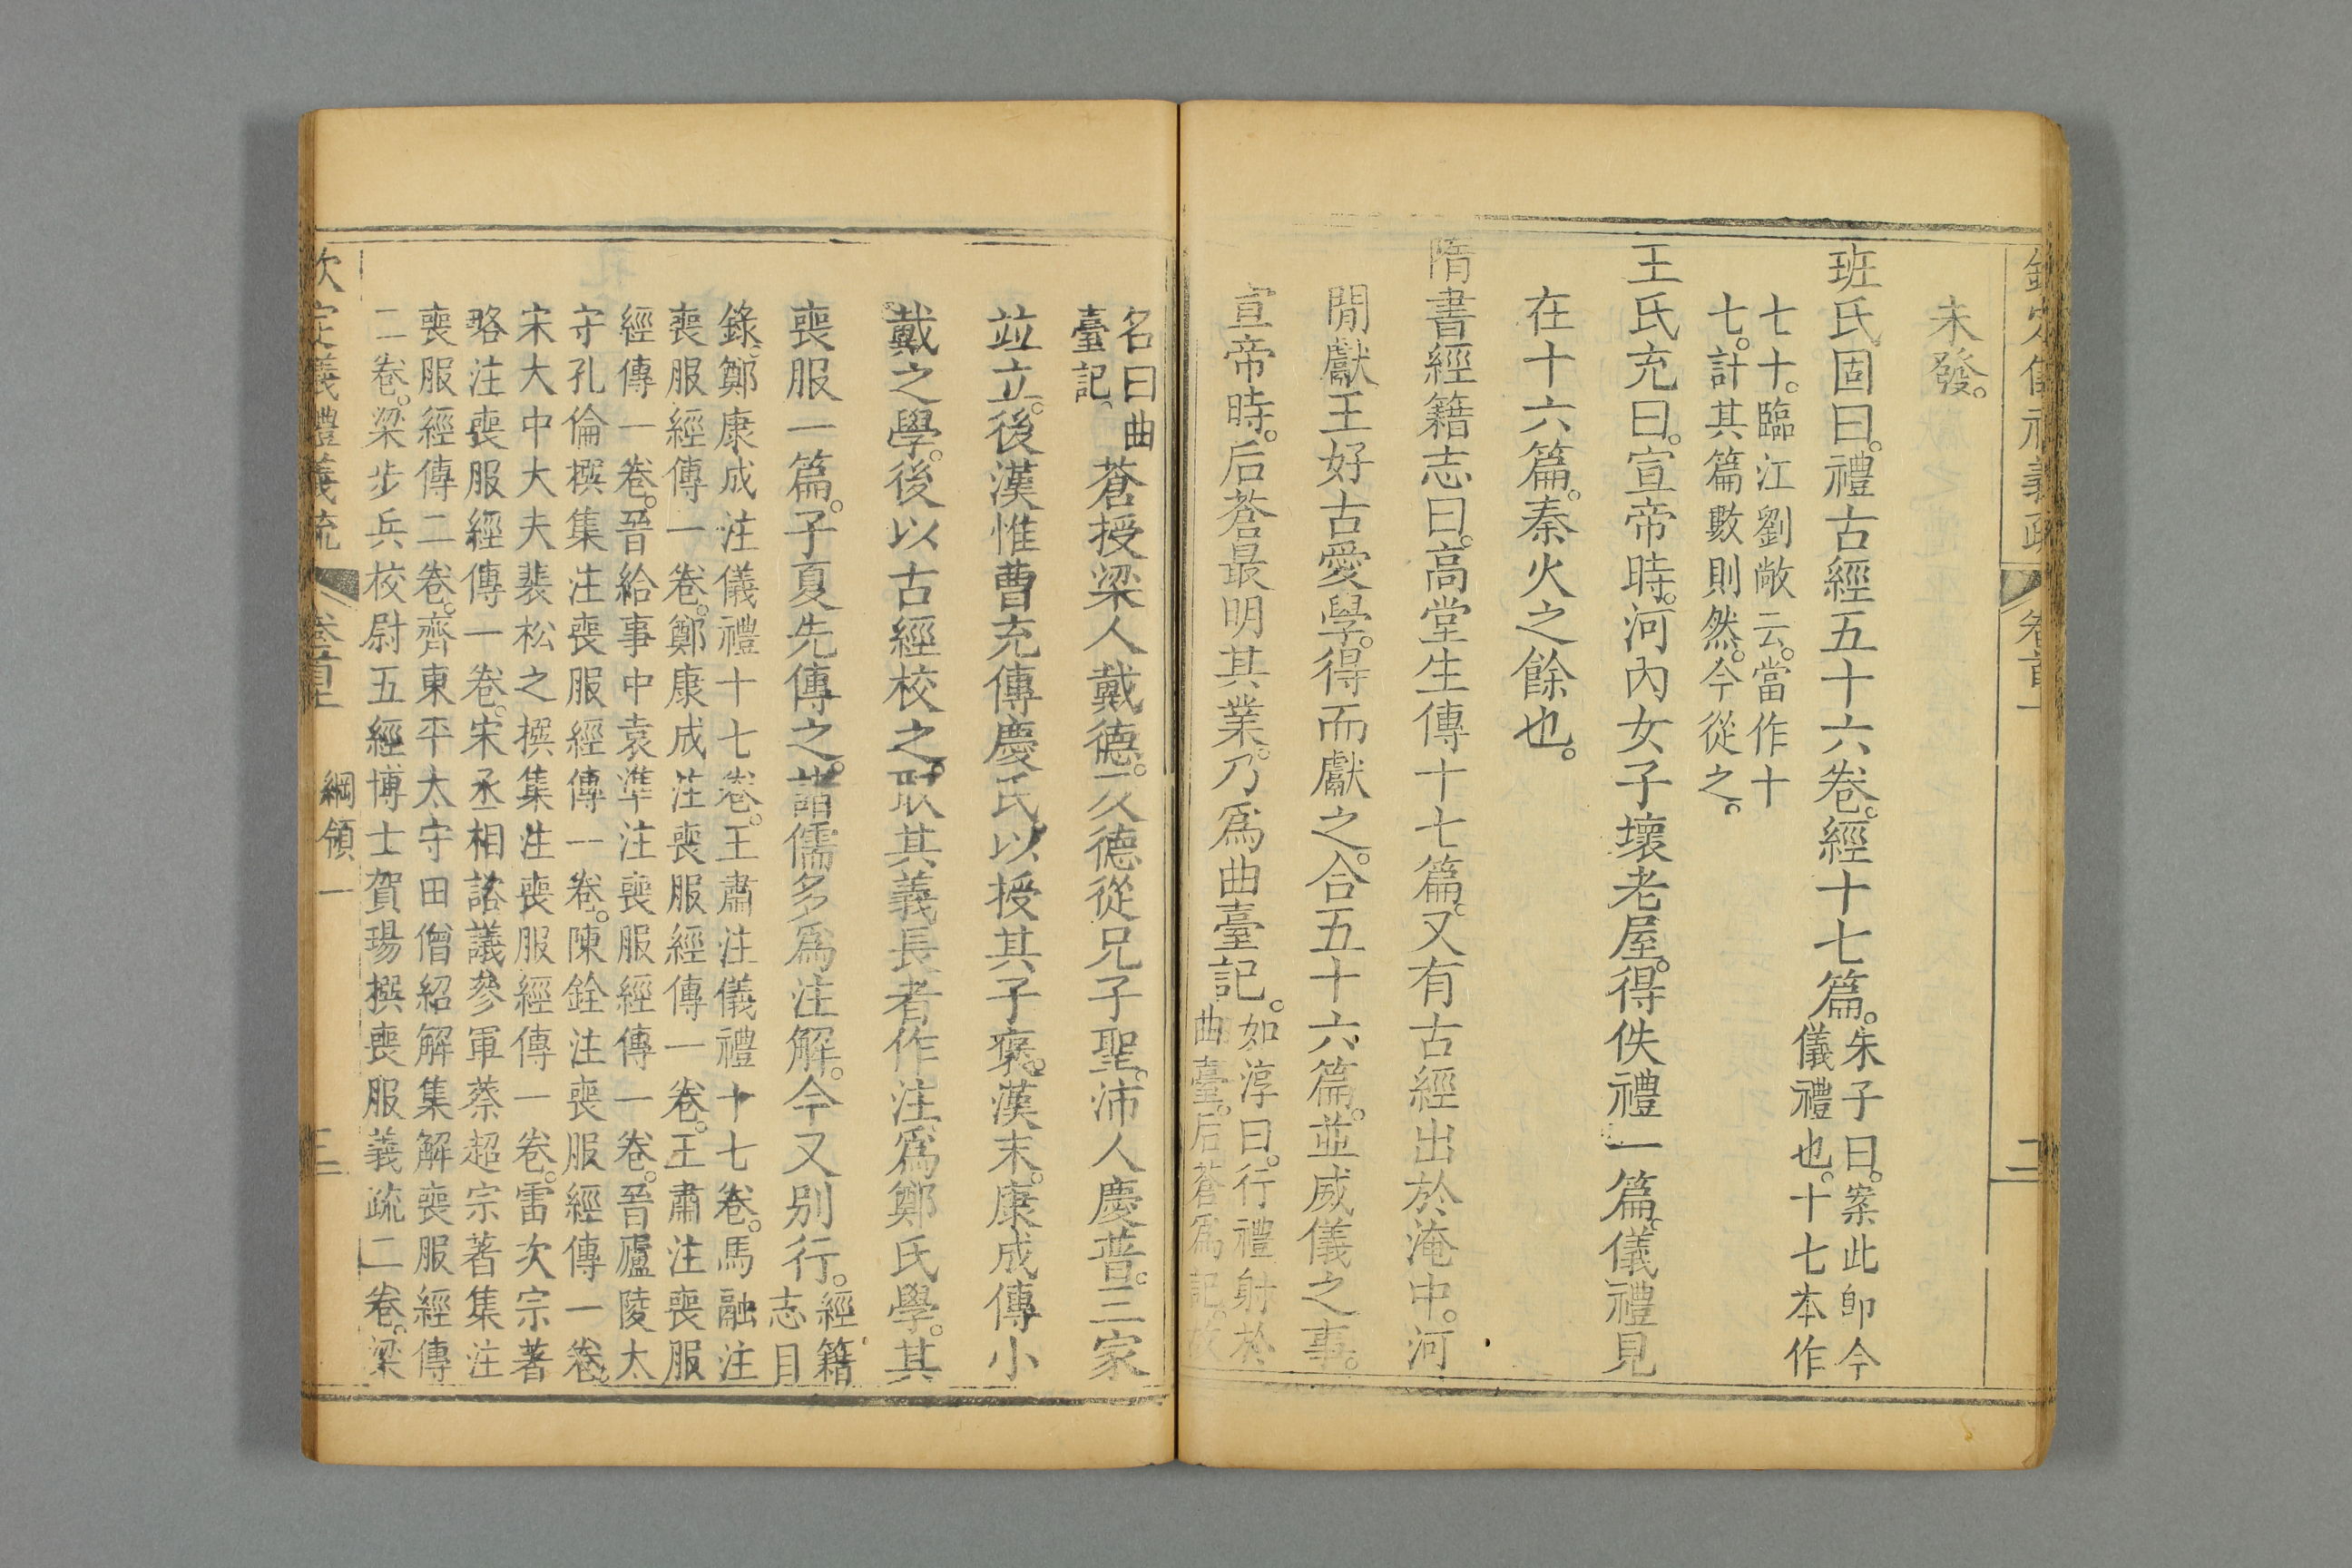 未發。
班氏固曰。禮古經五十六卷。經十七篇。朱子曰。案此即今
儀禮也。十七本作
七十。臨江劉敞云。當作十
七。計其篇數則然。今從之。
王氏充曰。宣帝時。河內女子壞老屋。得佚禮一篇。儀禮見
在十六篇。秦火之餘也。
隋書經籍志曰。高堂生傳十七篇。又有古經出於淹中。河
閒獻王好古愛學。得而獻之。合五十六篇。並威儀之事。
宣帝時。后蒼最明其業。乃爲曲臺記。如淳曰。行禮射於
曲臺。后蒼爲記。故
名曰曲
臺記。
蒼授梁人戴德。及德從兄子聖。沛人慶普。三家
竝立。後漢惟曹充傳慶氏。以授其子褒。漢末。康成傳小
戴之學。後以古經校之。取其義長者作注。爲鄭氏學。其
喪服一篇。子夏先傳之。諸儒多爲注解。今又别行。經籍
志目
錄。鄭康成注儀禮十七卷。王肅注儀禮十七卷。馬融注
喪服經傳一卷。鄭康成注喪服經傳一卷。王肅注喪服
經傳一卷。晉給事中袁準注喪服經傳一卷。晉廬陵太
守孔倫撰集注喪服經傳一卷。陳銓注喪服經傳一卷。
宋大中大夫裴松之撰集注喪服經傳一卷。雷次宗著
略注喪服經傳一卷。宋丞相諮議參軍蔡超宗著集注
喪服經傳二卷。齊東平太守田僧紹解集解喪服經傳
二卷。梁步兵校尉五經博士賀瑒撰喪服義疏二卷。梁
欽定儀禮義疏 卷首上 綱領一 三